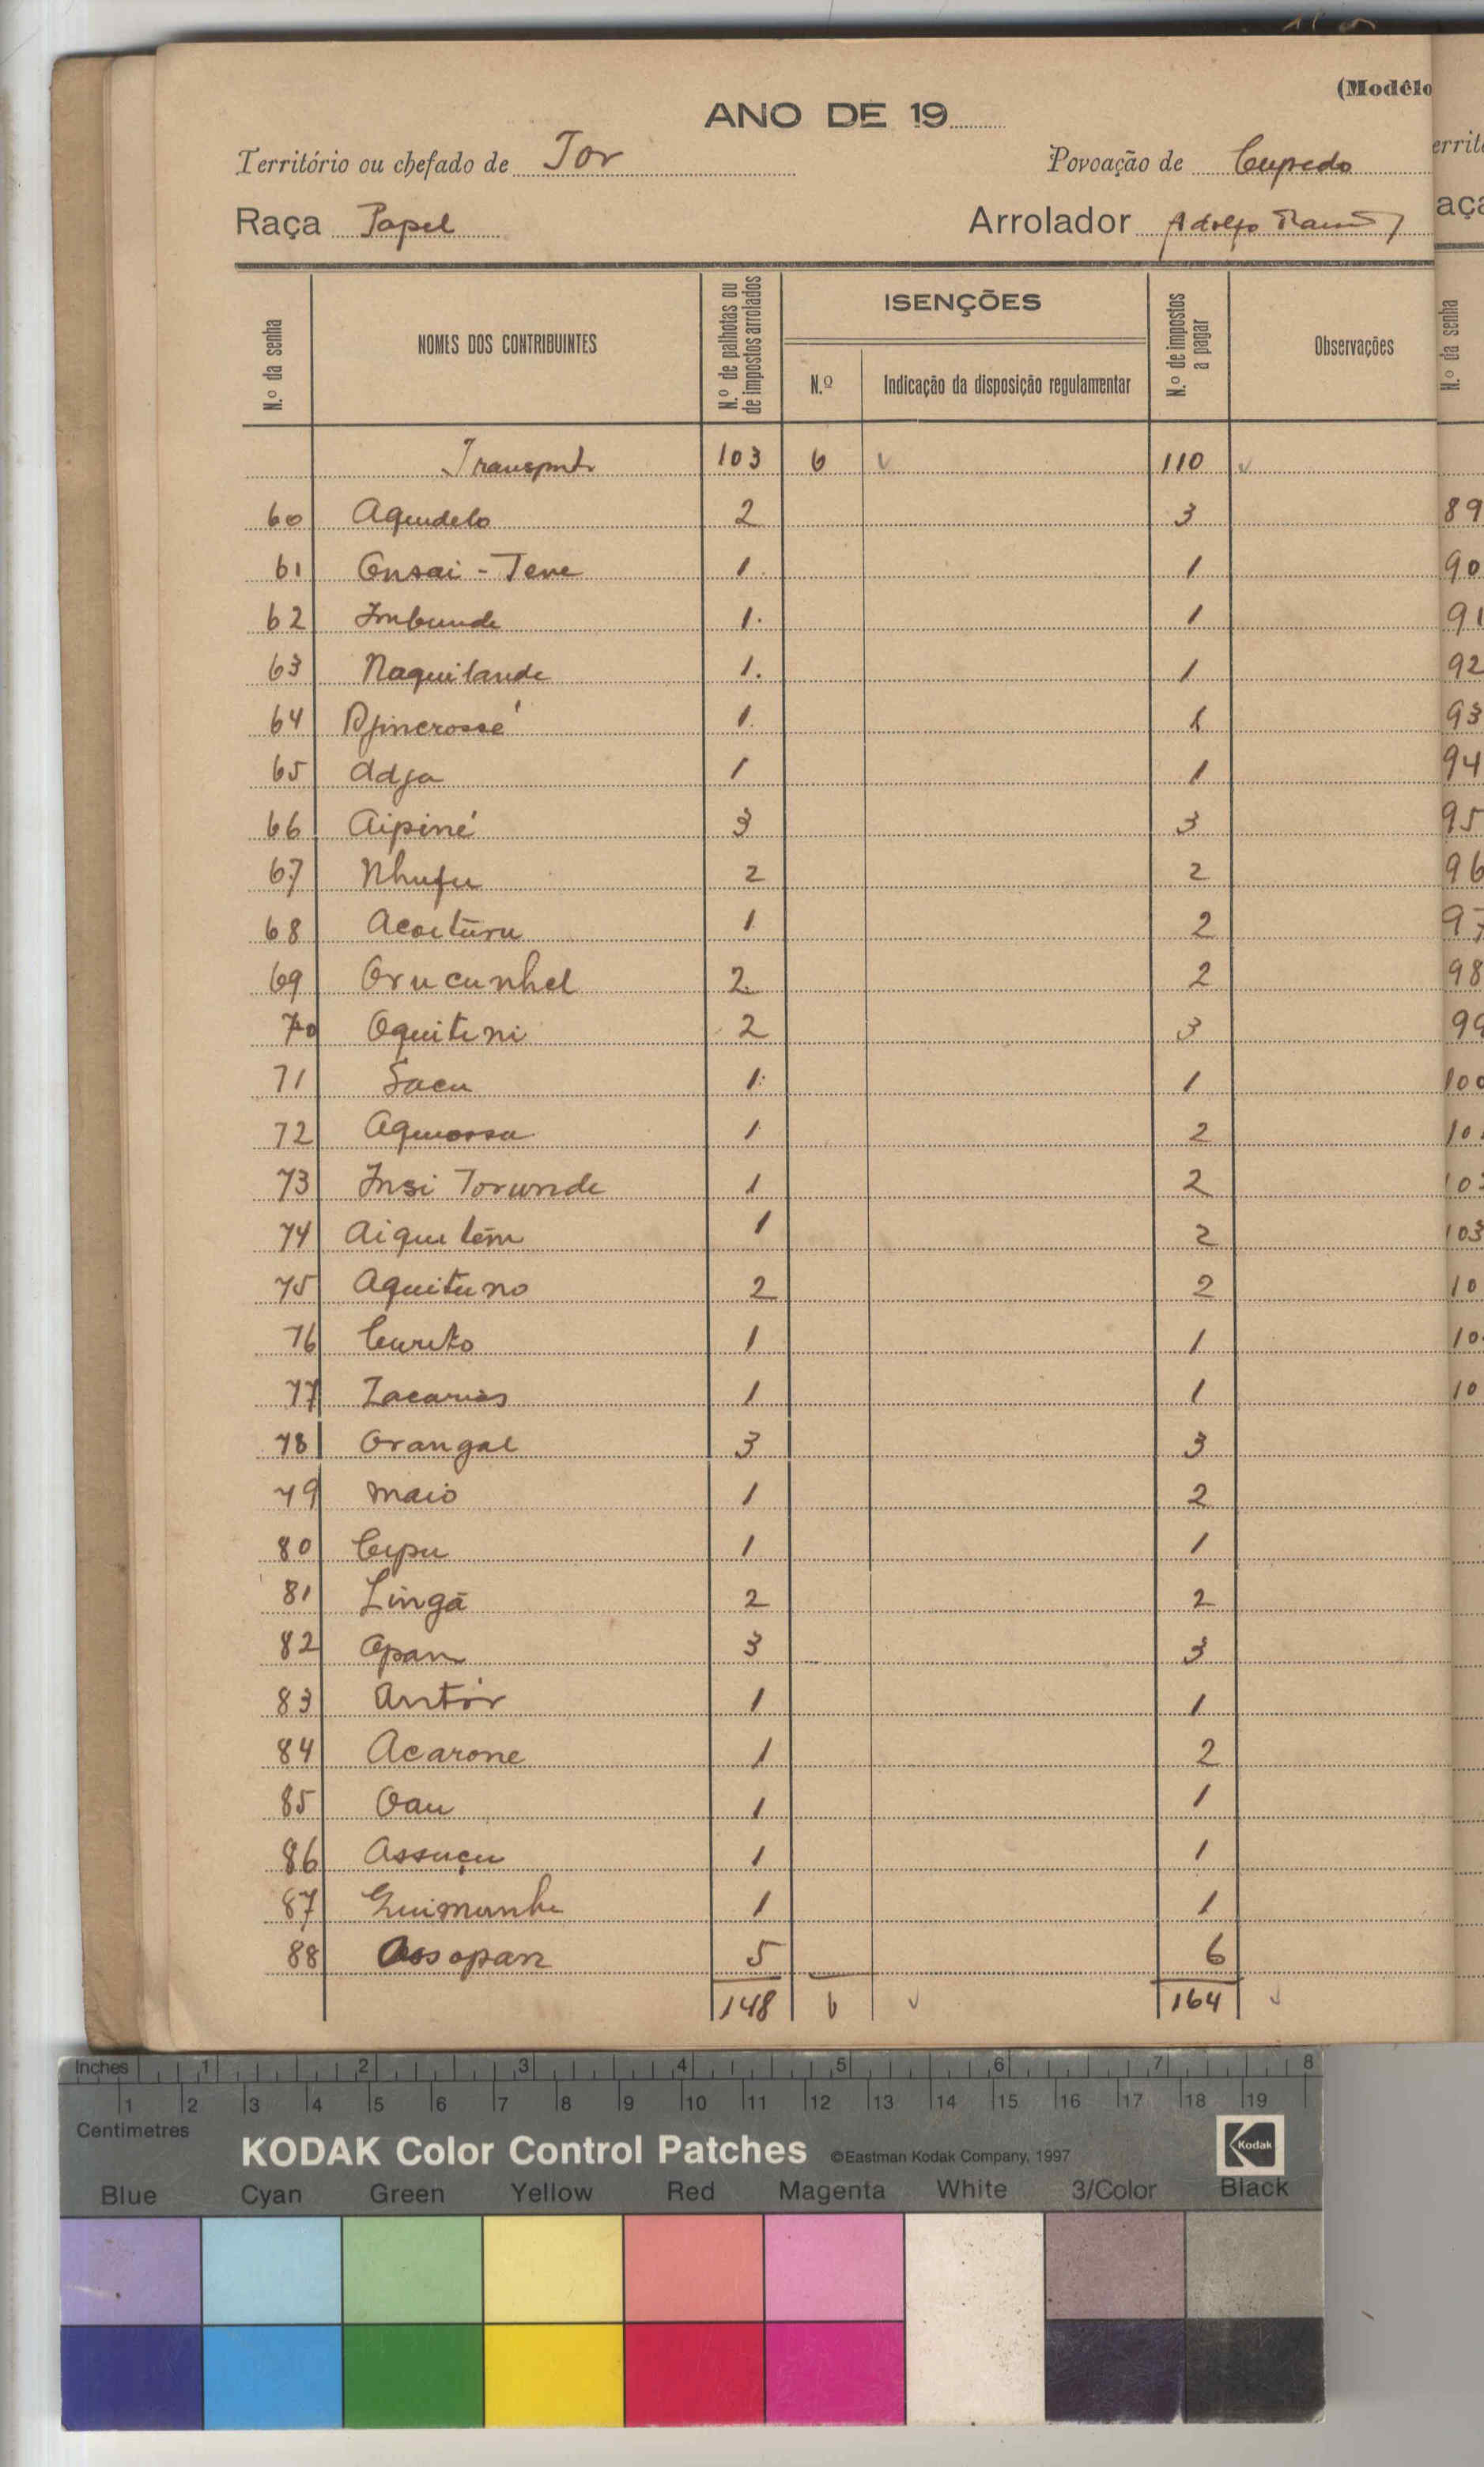 (Modêlo
ANO DE 19
Território ou chefado de Tor Povoação de Cupedo
Raça Papel Arrolador Adolfo
N.º da senha NOMES DOS CONTRIBUINTES N.º de palhotas ou de impostos arrolados ISENÇÕES N.º Indicação da disposição regulamentar N.º de impostos a pagar Observações
Transporte 103 6 v 110 v
60 Aqudelo 2 3
61 Onsai - Teve 1 1
62 Imbunde 1. 1
63 Naquilande 1. 1
64 1. 1
65 Adja 1 1
66 Aipiné 3 3
67 Nhufu 2 2
68 1 2
69 Orucunhel 2 2
70 Oquiteni 2 3
71 Sacu 1 1
72 1 2
73 Insi Torunde 1 2
74 Aiqui tém 1 2
75 Aquituno 2 2
76 Curito 1 1
77 Zacarias 1 1
78 Orangal 3 3
79 Maio 1 2
80 Cupu 1 1
81 Lingã 2 2
82 Opan 3 3
83 Antór 1 1
84 Acarone 1 2
85 Oau 1 1
86 Assuçu 1 1
87 Guimunhe 1 1
88 Assopan 5 6
148 6 v 164 v
errit
aça
N.º da senha
89
90
91
92
93
94
95
96
97
98
99
100
10
10
103
10
10
10
Inches 1 2 3 4 5 6 7 8
1 2 3 4 5 6 7 8 9 10 11 12 13 14 15 16 17 18 19
Centimetres
KODAK Color Control Patches ©Eastman Kodak Company, 1997 Kodak
Blue Cyan Green Yellow Red Magenta White 3/Color Black